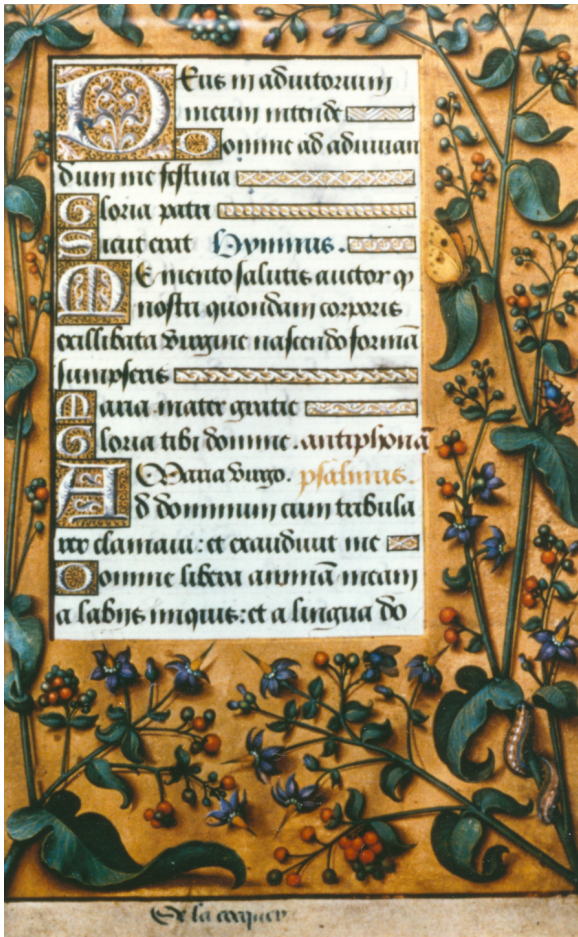 Deus in adiutorium
meum intende
Domine ad adiuuan
dum me festina
Gloria patri
Sicut erat Hymnus.
Memento salutis auctor ꝙ
nostri quondam corporis
exillibata virgine nascendo formā
sumpseris
Maria mater gratie
Gloria tibi domine. antiphonā
A Maria virgo. psalmus.
Ad dominum cum tribula
rer clamaui: et exaudiuit me
Domine libera animā meam
a labijs iniquis: et a lingua do
De la